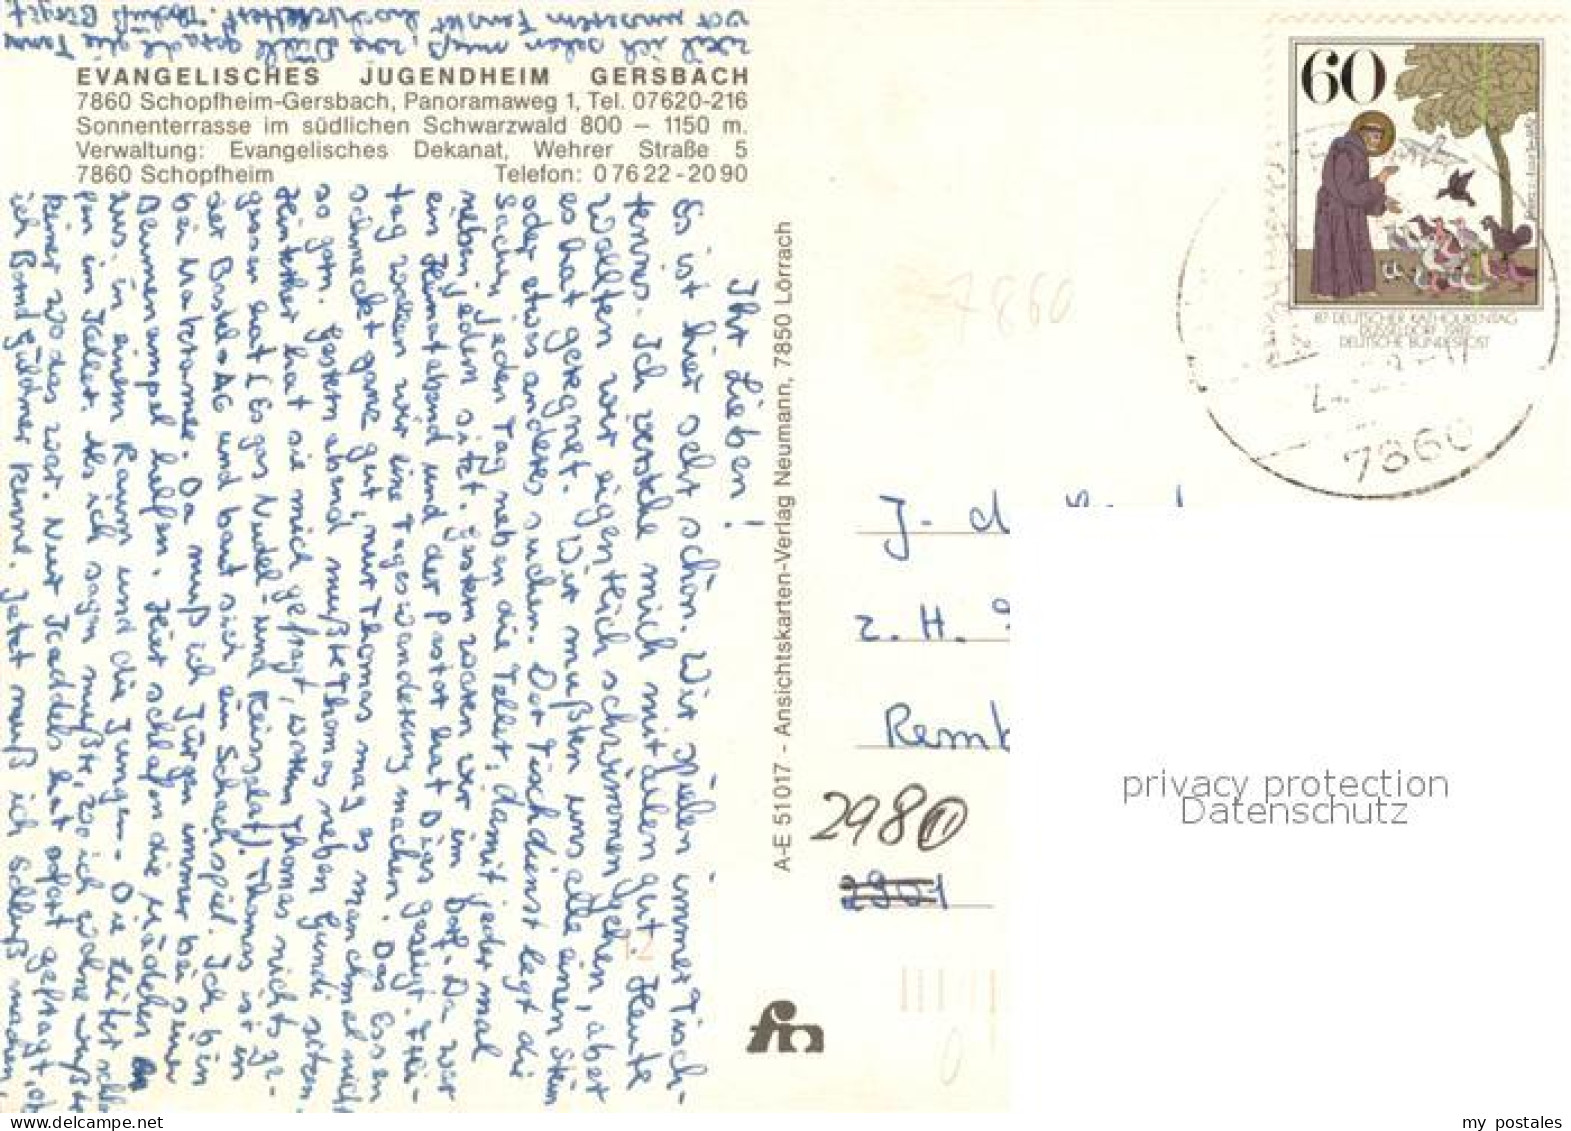 EVANGELISCHES JUGENDHEIM GERSBACH
7860 Schopfheim-Gersbach, Panoramaweg 1, Tel. 07620-216
Sonnenterrasse im südlichen Schwarzwald 800 – 1150 m.
Verwaltung: Evangelisches Dekanat, Wehrer Straße 5
7860 Schopfheim Telefon: 07622-2090
Ihr Lieben!
Es ist hier sehr schön. Wir spielen immer Tisch-
tennis. Ich verstehe mich mit allen gut. Heute
wollten wir eigentlich schwimmen gehen, aber
es hat geregnet. Wir mußten uns alle einen Stein
oder etwas anderes suchen. Der Tischdienst legt die
Sachen jeden Tag neben die Teller, damit jeder mal
neben jedem sitzt. Gestern waren wir im Dorf. Da war
ein Heimatabend und der Pastor hat Dias gezeigt. Frei-
tag wollen wir eine Tageswanderung machen. Das Essen
schmeckt ganz gut, nur Thomas mag es manchmal nicht
so gern. Gestern abend mußte Thomas neben Gundi sitzen.
Hinterher hat sie mich gefragt, warum Thomas nichts ge-
gessen hat (Es gab Nudel- und Reissalat). Thomas ist in
der Bastel-AG und baut sich ein Schachspiel. Ich bin
bei Makramee. Da muß ich Jürgen immer bei seiner
Blumenampel helfen. Hier schlafen die Mädchen
aus in einem Raum und die Jungen. Die Leiter
pen im Keller. Als ich sagen mußte, wo ich wohne wußte
keiner wo das war. Nur Taddels hat sofort gefragt, ob
ich Bernd Güldner kenne. Jetzt muß ich Schluß machen,
weil ich sehen muß, wie Düdle gerade die Tanne
vor unserem Fenster hochklettert. Tschüß Birgit
A-E 51017 - Ansichtskarten-Verlag Neumann, 7850 Lörrach
fn
60
87. DEUTSCHER KATHOLIKENTAG
DÜSSELDORF 1982
DEUTSCHE BUNDESPOST
7860
7860
J. d.
z. H.
Remb
2980
2981
privacy protection
Datenschutz
my postales